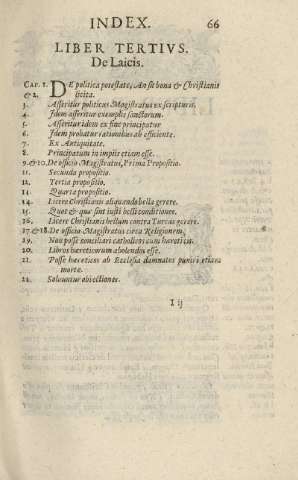 INDEX. 66
LIBER TERTIVS.
De Laicis.
CAP. 1. DE politica potestate, An sit bona & Christianis
& 2. licita.
3. Asseritur politicus Magistratus ex scripturis.
4. Idem asseritur exemplis sanctorum.
5. Asseritur idem ex fine principatus
6. Idem probatur rationibus ab efficiente.
7. Ex Antiquitate.
8. Principatum in impiis etiam esse.
9. & 10. De officio Magistratus, Prima Propositio.
11. Secunda propositio.
12. Tertia propositio.
13. Quarta propositio.
14. Licere Christianis aliquando bella gerere.
15. Quot & quæ sint iusti belli conditiones.
16. Licere Christianis bellum contra Turcas gerare.
17 & 18. De officio Magistratus circa Religionem.
19. Non posse conciliari catholicos cum hæreticis.
20. Libros hæreticorum abolendos esse.
21. Posse hæreticos ab Ecclesia damnatos puniri etiam
morte.
22. Soluuntur obiectiones.
I ij